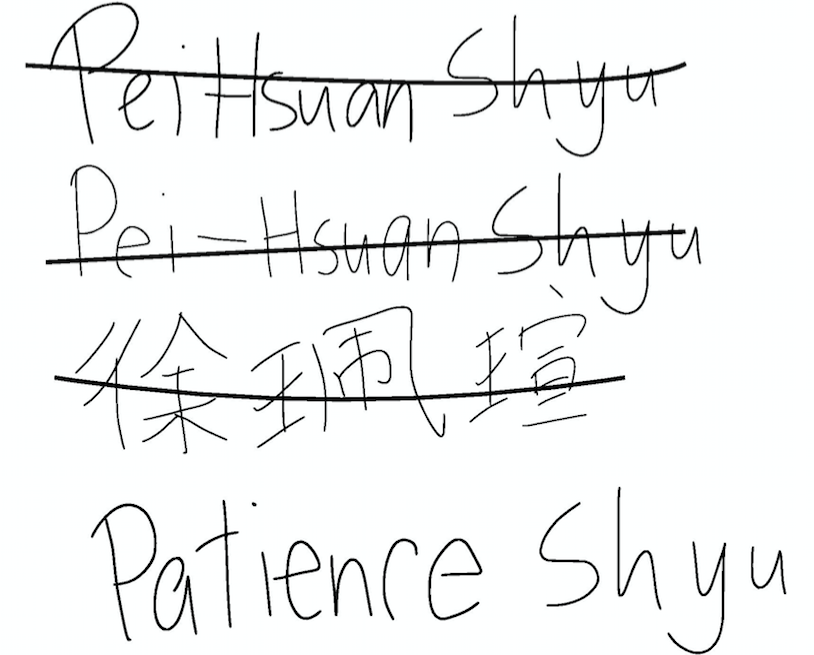 Pei Hsuan Shyu
Pei-Hsuan Shyu
徐珮瑄
Patience Shyu